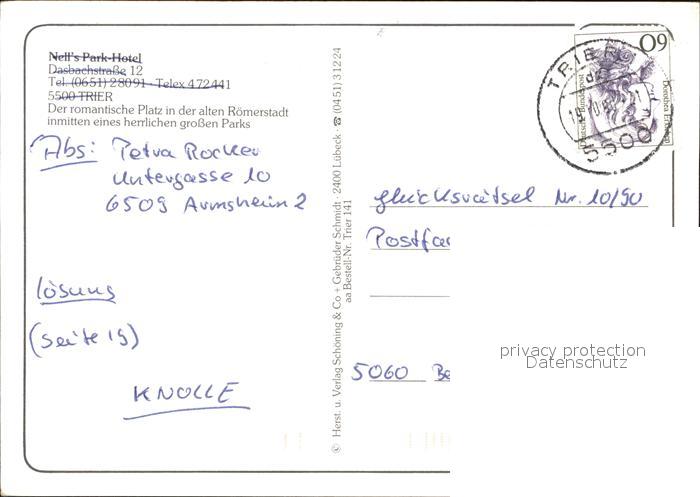 Nell's Park-Hotel
Dasbachstraße 12
Tel. (0651) 28091 · Telex 472441
5500 TRIER
Der romantische Platz in der alten Römerstadt
inmitten eines herrlichen großen Parks
Abs: Petra Rocker
Untergasse 10
6509 Armsheim 2
Lösung
(Seite 19)
KNOLLE
© Herst. u. Verlag Schöning & Co + Gebrüder Schmidt · 2400 Lübeck · ☎ (0451) 31224
aa Bestell-Nr. Trier 141
TRIER
5500
60
Deutsche Bundespost
Glücksrätsel Nr. 10/90
Postfa
5060 Be
privacy protection
Datenschutz